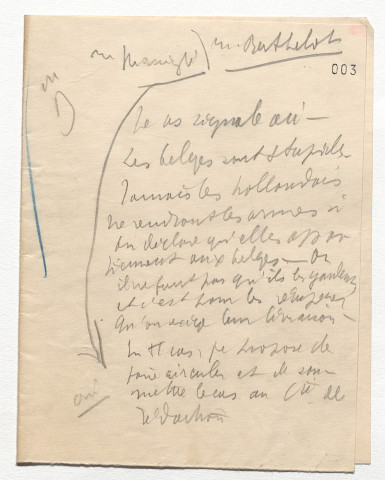 M. Massigli) M. Berthelot
003
Je os signale ceci —
Les belges sont stupides
Jamais les hollandais
ne rendront les armes si
on déclare qu'elles appar
tiennent aux belges — Or
il ne faut pas qu'ils les gardent
et c'est pour les récupérer
qu'on exige leur livraison —
En tt cas, je propose de
faire circuler et de sou
mettre le cas au Cté de
rédaction
oui